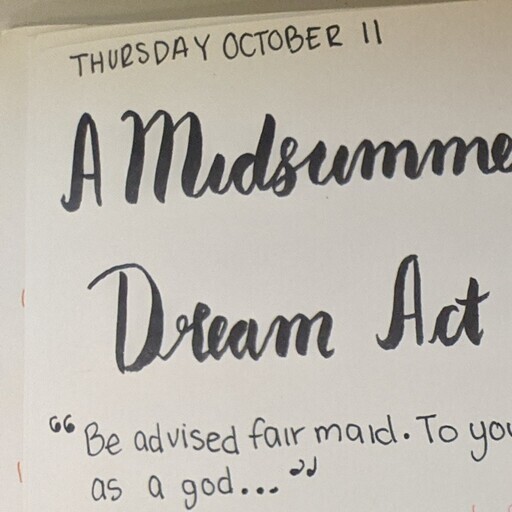 THURSDAY OCTOBER 11
A Midsumme
Dream Act
“Be advised fair maid. To you
as a god...”